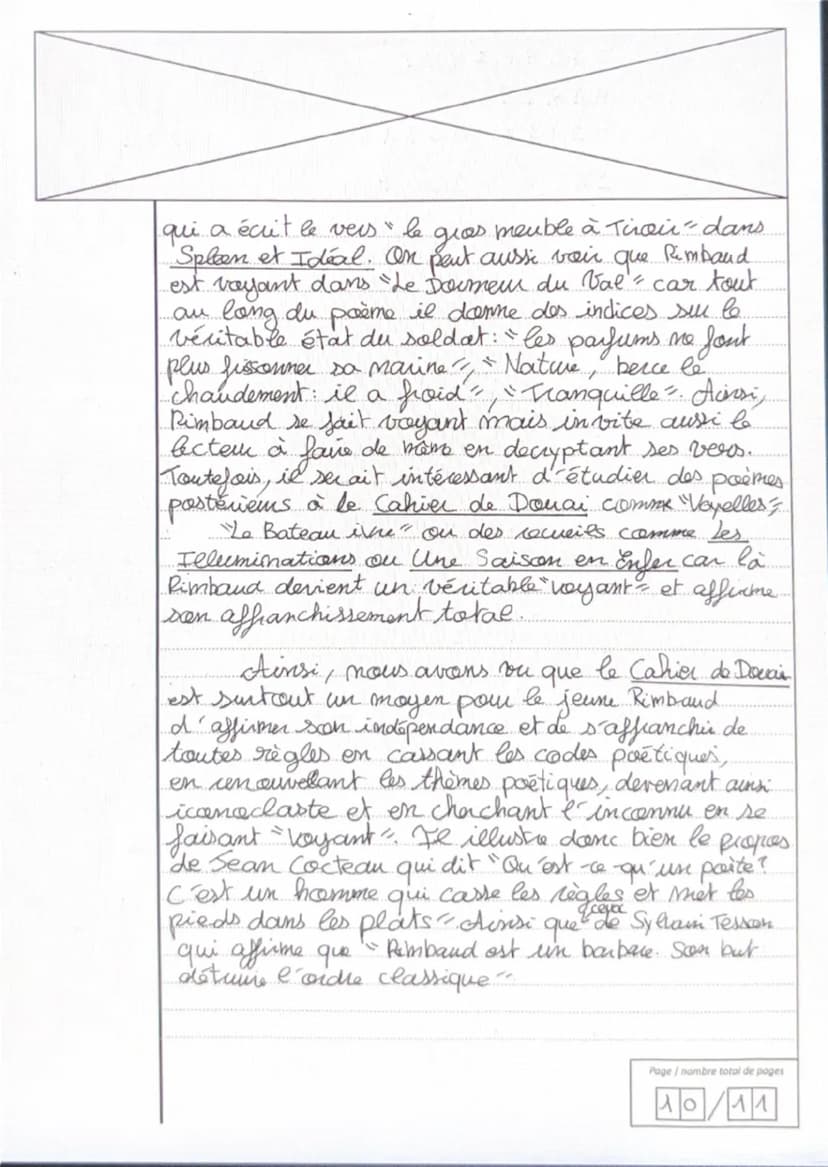 qui a écrit le vers " le gros meuble à Tiroir " dans
Spleen et Idéal. On peut aussi voir que Rimbaud
est voyant dans "Le Dormeur du Val " car tout
au long du poème il donne des indices sur le
véritable état du soldat : " les parfums ne font
plus frissonner sa narine ", " Nature, berce le
chaudement : il a froid ", " Tranquille ". Ainsi,
Rimbaud se fait voyant mais invite aussi le
lecteur à faire de même en decryptant ses vers.
Toutefois, il serait intéressant d'étudier des poèmes
postérieurs à le Cahier de Douai comme "Voyelles",
"Le Bateau ivre" ou des recueils comme Les
Illuminations ou Une Saison en Enfer car là
Rimbaud devient un véritable "voyant" et affirme
son affranchissement total.
Ainsi, nous avons vu que le Cahier de Douai
est surtout un moyen pour le jeune Rimbaud
d'affirmer son indépendance et de s'affranchir de
toutes règles en cassant les codes poétiques,
en renouvellant les thèmes poétiques, devenant ainsi
iconoclaste et en cherchant l'inconnu en se
faisant "voyant". Il illustre donc bien le propos
de Jean Cocteau qui dit "Qu'est-ce-qu'un poète?
C'est un homme qui casse les règles et met les
pieds dans les plats" Ainsi que ceux de Sylvain Tesson
qui affirme que " Rimbaud est un barbare. Son but
détruire l'ordre classique "
Page / nombre total de pages
10/11